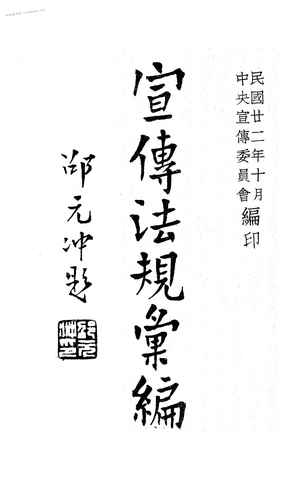 民國廿二年十月
中央宣傳委員會編印
宣傳法規彙編
邵元冲題